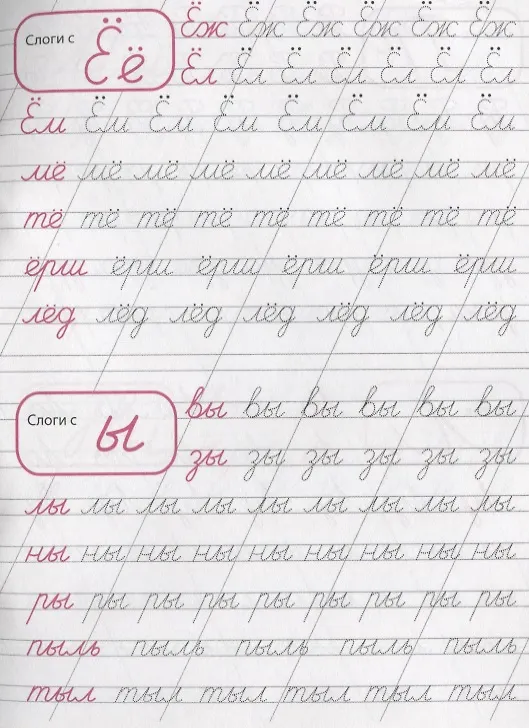 Слоги с Ёё
Ёж Ёж Ёж Ёж Ёж Ёж
Ёл Ёл Ёл Ёл Ёл Ёл Ёл
Ём Ём Ём Ём Ём Ём Ём Ём
мё мё мё мё мё мё мё мё мё
тё тё тё тё тё тё тё тё тё
ёрш ёрш ёрш ёрш ёрш ёрш
лёд лёд лёд лёд лёд лёд лёд
Слоги с ы
вы вы вы вы вы вы
зы зы зы зы зы зы
лы лы лы лы лы лы лы лы лы
ны ны ны ны ны ны ны ны ны
ры ры ры ры ры ры ры ры ры
пыль пыль пыль пыль пыль
тыл тыл тыл тыл тыл тыл